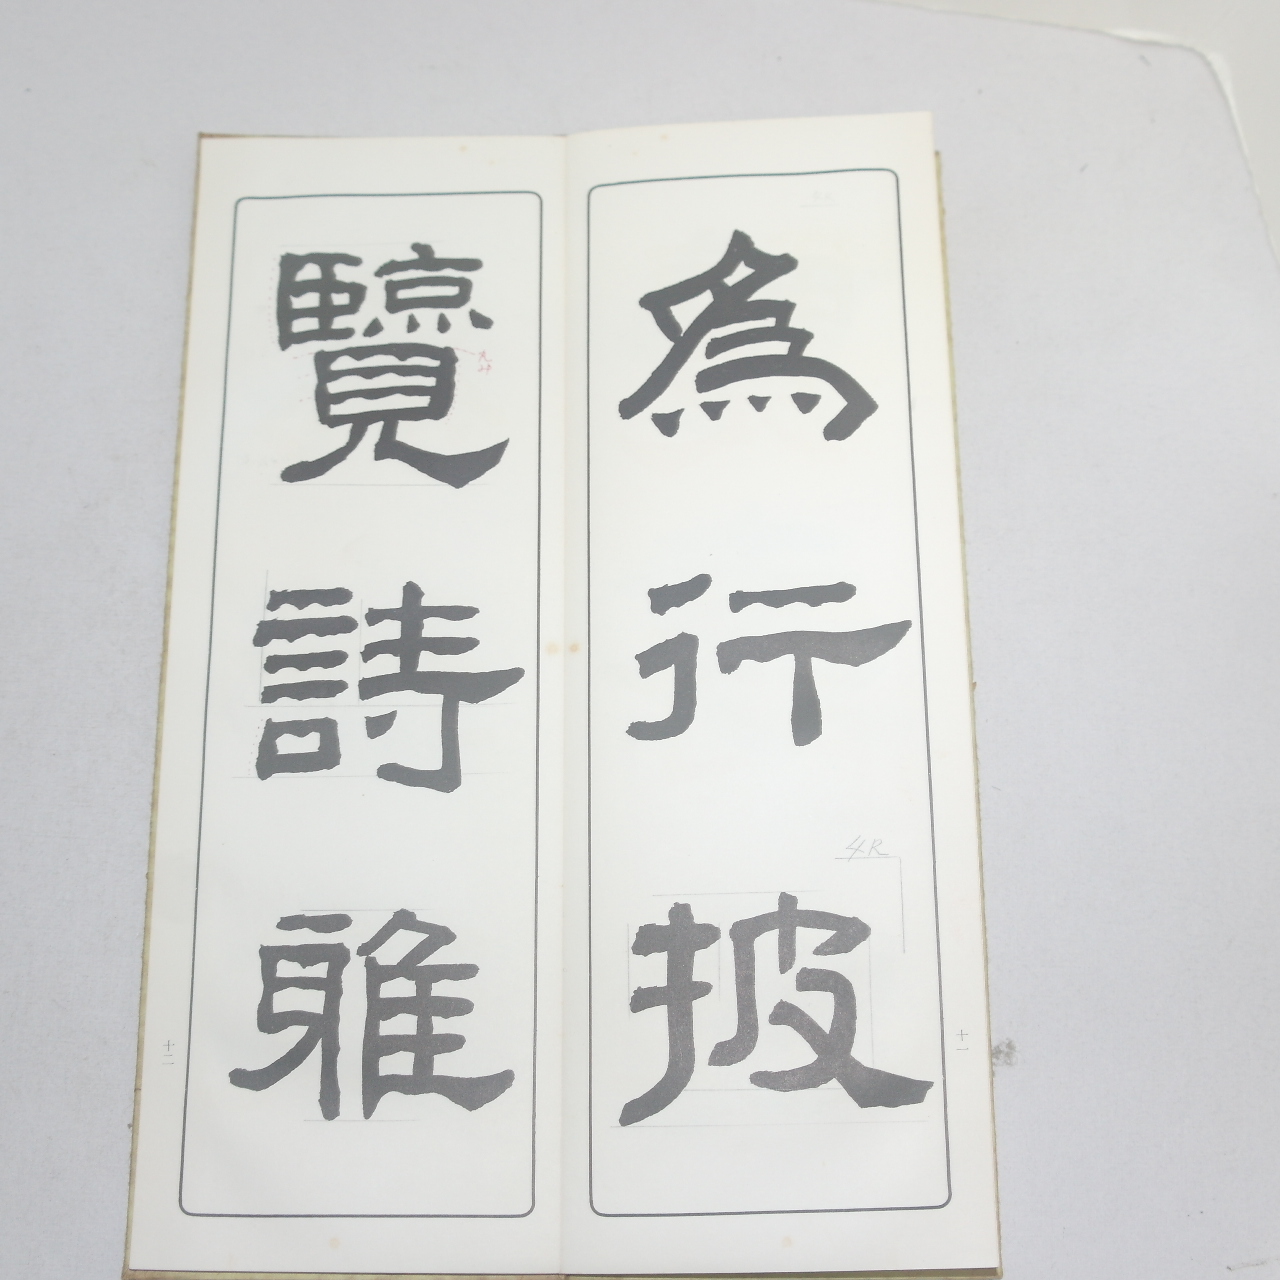 為行披
十一
覽詩雅
十二
4R